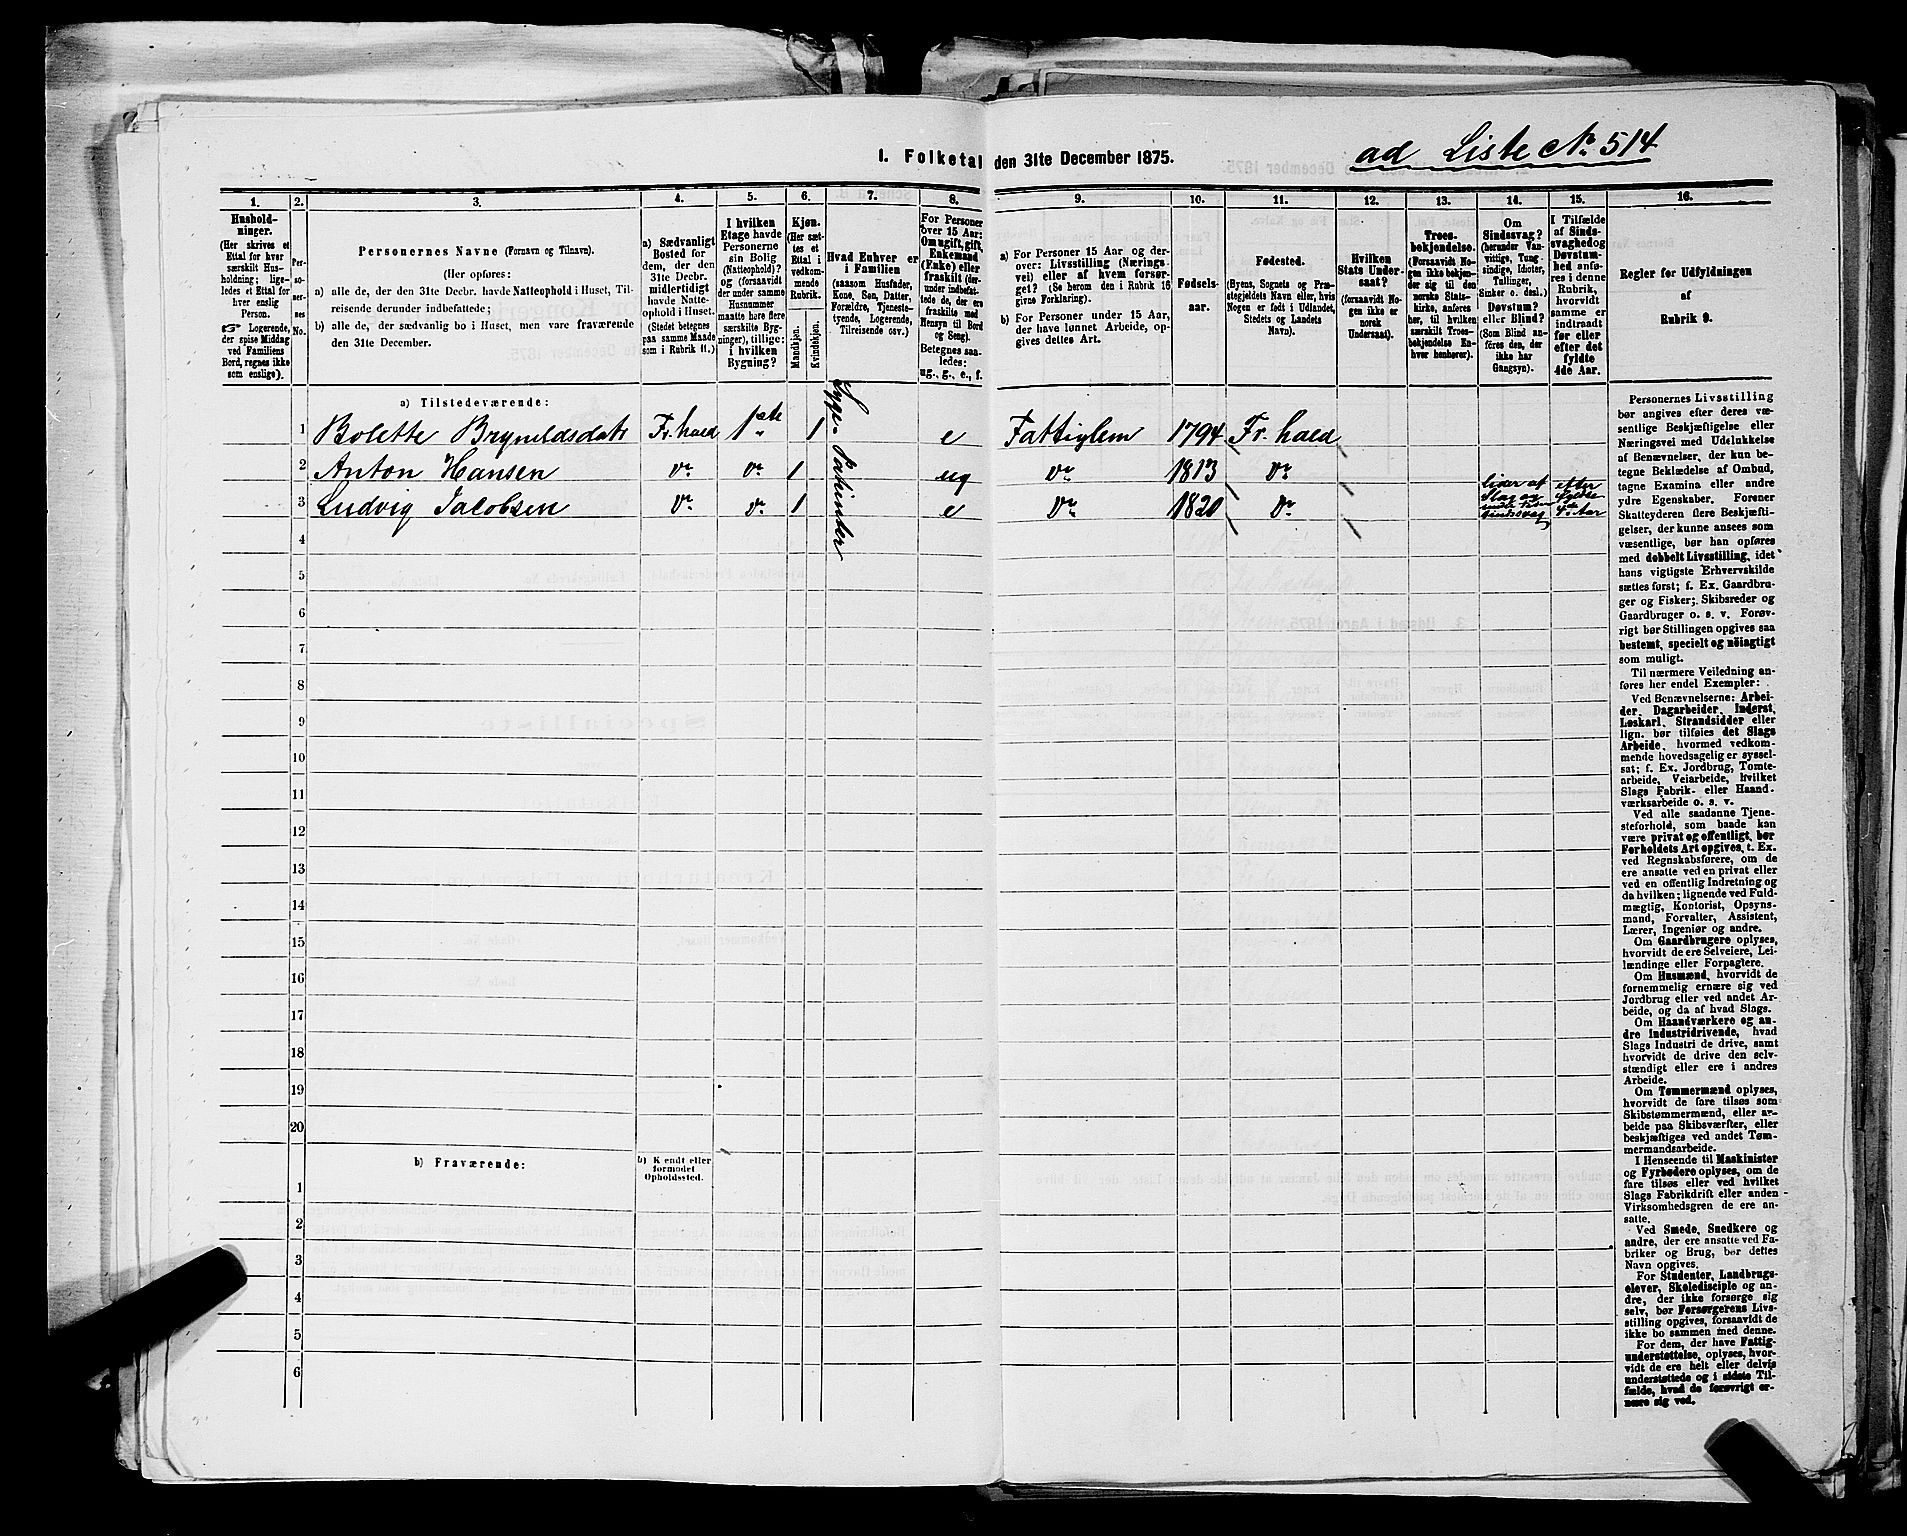 I. Folketal den 31te December 1875.
ad Liste No 514
1.
2.
3.
4.
5.
6.
7.
8.
9.
10.
11.
12.
13.
14.
15.
16.
Hushold-
ninger.
(Her skrives et
Ettal for hver
særskilt Hus-
holdning; lige-
ledes et Ettal for
hver enslig
Person.
☞ Logerende,
der spise Middag
ved Familiens
Bord, regnes ikke
som enslige).
Per-
so-
ner-
nes
No.
Personernes Navne (Fornavn og Tilnavn).
(Her opføres:
a) alle de, der den 31te Decbr. havde Natteophold i Huset, Til-
reisende derunder indbefattede;
b) alle de, der sædvanlig bo i Huset, men vare fraværende
den 31te December.
a) Sædvanligt
Bosted for
dem, der den
31te Decbr.
midlertidigt
havde Natte-
ophold i Huset.
(Stedet betegnes
paa samme Maade
som i Rubrik 11.)
I hvilken
Etage havde
Personerne
sin Bolig
(Natteophold)?
og (forsaavidt
der under samme
Husnummer
maatte høre flere
særskilte Byg-
ninger), tillige:
i hvilken
Bygning?
Kjøn.
(Her sæt-
tes et
Ettal i
vedkom-
mende
Rubrik.
Mandkjøn.
Kvindekjøn.
Hvad Enhver er
i Familien
(saasom Husfader,
Kone, Søn, Datter,
Forældre, Tjeneste-
tyende, Logerende,
Tilreisende osv.)
For Personer
over 15 Aar:
Om ugift, gift,
Enkemand
(Enke) eller
fraskilt (der-
under indbefat-
tede de, der ere
fraskilte med
Hensyn til Bord
og Seng).
Betegnes saa-
ledes:
ug., g., e., f.
a) For Personer 15 Aar og der-
over: Livsstilling (Nærings-
vei) eller af hvem forsør-
get? (Se herom den i Rubrik 16
givne Forklaring).
b) For Personer under 15 Aar,
der have lønnet Arbeide, op-
gives dettes Art.
Fødsels-
aar.
Fødested.
(Byens, Sognets og Præ-
stegjeldets Navn eller, hvis
Nogen er født i Udlandet,
Stedets og Landets
Navn).
Hvilken
Stats Under-
saat?
(forsaavidt No-
gen ikke er
norsk
Undersaat).
Troes-
bekjendelse.
(Forsaavidt No-
gen ikke bekjen-
der sig til den
norske Stats-
kirke, anføres
her, til hvilken
særskilt Troes-
bekjendelse En-
hver henhører).
Om
Sindssvag?
(herunder Van-
vittige, Tung-
sindige, Idioter,
Tullinger,
Sinker o. desl.)
Døvstum?
eller Blind?
(Som Blind an-
føres den, der
ikke har
Gangsyn).
I Tilfælde
af Sinds-
svaghed og
Døvstum-
hed anfø-
res i denne
Rubrik,
hvorvidt
samme er
indtraadt
før eller
efter det
fyldte
4de Aar.
Regler for Udfyldningen
af
Rubrik 9.
a) Tilstedeværende:
1 Bolette Brynildsdatr Fr.hald 1ste 1 e Fattiglem 1794 Fr. hald
2 Anton Hansen do do 1 ug do 1813 do
3 Ludvig Jacobsen do do 1 e do 1820 do
Syge-Patienter
lider af
Slag
efter
fyldte
4de Aar
4
5
6
7
8
9
10
11
12
13
14
15
16
17
18
19
20
b) Fraværende:
b) Kjendt eller
formodet
Opholdssted.
1
2
3
4
5
6
Personernes Livsstilling
bør angives efter deres væ-
sentlige Beskjæftigelse eller
Næringsvei med Udelukkelse
af Benævnelser, der kun be-
tegne Beklædelse af Ombud,
tagne Examina eller andre
ydre Egenskaber. Forener
Skatteyderen flere Beskjæfti-
gelser, der kunne ansees som
væsentlige, bør han opføres
med dobbelt Livsstilling, idet
hans vigtigste Erhvervskilde
sættes først; f. Ex. Gaardbru-
ger og Fisker; Skibsreder og
Gaardbruger o. s. v. Forøv-
rigt bør Stillingen opgives saa
bestemt, specielt og nöiagtigt
som muligt.
Til nærmere Veiledning an-
føres her endel Exempler:
Ved Benævnelserne: Arbei-
der, Dagarbeider, Inderst,
Løskarl, Strandsidder eller
lign. bør tilføies det Slags
Arbeide, hvormed vedkom-
mende hovedsagelig er syssel-
sat; f. Ex. Jordbrug, Tomte-
arbeide, Veiarbeide, hvilket
Slags Fabrik- eller Haand-
værksarbeide o. s. v.
Ved alle saadanne Tjene-
steforhold, som baade kan
være privat og offentligt, bør
Forholdets Art opgives, t. Ex.
ved Regnskabsførere, om de
ere ansatte ved en privat eller
ved en offentlig Indretning og
da hvilken; lignende ved Fuld-
mægtig, Kontorist, Opsyns-
mand, Forvalter, Assistent,
Lærer, Ingeniør og andre.
Om Gaardbrugere oplyses,
hvorvidt de ere Selveiere, Lei-
lændinge eller Forpagtere.
Om Husmænd, hvorvidt de
fornemmelig ernære sig ved
Jordbrug eller ved andet Ar-
beide, og da af hvad Slags.
Om Haandværkere og an-
dre Industridrivende, hvad
Slags Industri de drive, samt
hvorvidt de drive den selv-
stændigt eller ere i andres
Arbeide.
Om Tømmermænd oplyses,
hvorvidt de fare tilsøs som
Skibstømmermænd, eller ar-
beide paa Skibsværfter, eller
beskjæftiges ved andet Tøm-
mermandsarbeide.
I Henseende til Maskinister
og Fyrbødere oplyses, om de
fare tilsøs eller ved hvilket
Slags Fabrikdrift eller anden
Virksomhedsgren de ere an-
satte.
Ved Smede, Snedkere og
andre, der ere ansatte ved Fa-
briker og Brug, bør dettes
Navn opgives.
For Studenter, Landbrugs-
elever, Skoledisciple og an-
dre, der ikke forsørge sig
selv, bør Forsørgerens Livs-
stilling opgives, forsaavidt de
ikke bo sammen med denne.
For dem, der have Fattig-
understøttelse, oplyses, hvor-
vidt de ere helt eller delvis
understøttede og i sidste Til-
fælde, hvad de forøvrigt er-
nære sig ved.